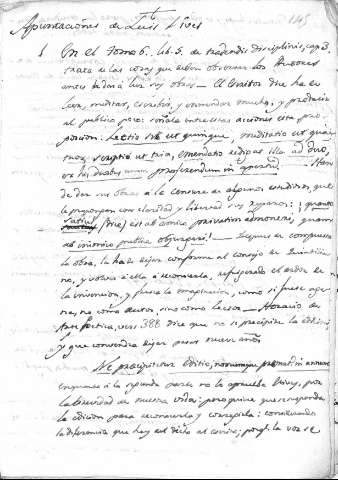 145
Apuntaciones de Luis Vives
1 En el Tomo 6. lib. 5. de tradendis disciplinis, cap. 3.
trata de las cosas que deben observar los Autores
antes de dar a luz sus obras — El Escritor dice ha de
leer, meditar, escribir, y enmendar mucho, y producir
al publico poco: señala entre estas acciones esta pro
porcion: Lectio sit ut quinque, meditatio ut qua
tuor, scriptio ut tria, emendatio redigat illa ad duo,
ex his duabus unum proferendum in apertum. — Han
de dar sus obras a la censura de algunos estudiosos, que
le propongan con claridad y libertad sus reparos:
satius (dice) est ab amico privatim admoneri, quam
ab inimico publice objurgari! — Despues de compuesta
la obra, la ha de dejar conforme al consejo de Quintilia
no, y volver a ella a reconocerla, refrigerado el ardor de
la invencion, y fuera la imaginacion, como si fuese age
na, no como Autor, sino como Lector — Horacio en
su Poetica, vers 388 dice que no se precipite la edicion
y que convendra dejar pasar nueve años.
Ne precipitetur editio, nonumque prematur in annum
En quanto a la segunda parte no la aprueba Vives, por
la brevedad de nuestra vida: pero quiere que se suspenda
la edicion para reconocerla y corregirla: considerando
la diferencia que hay del dicho al escrito; porq. la voz se